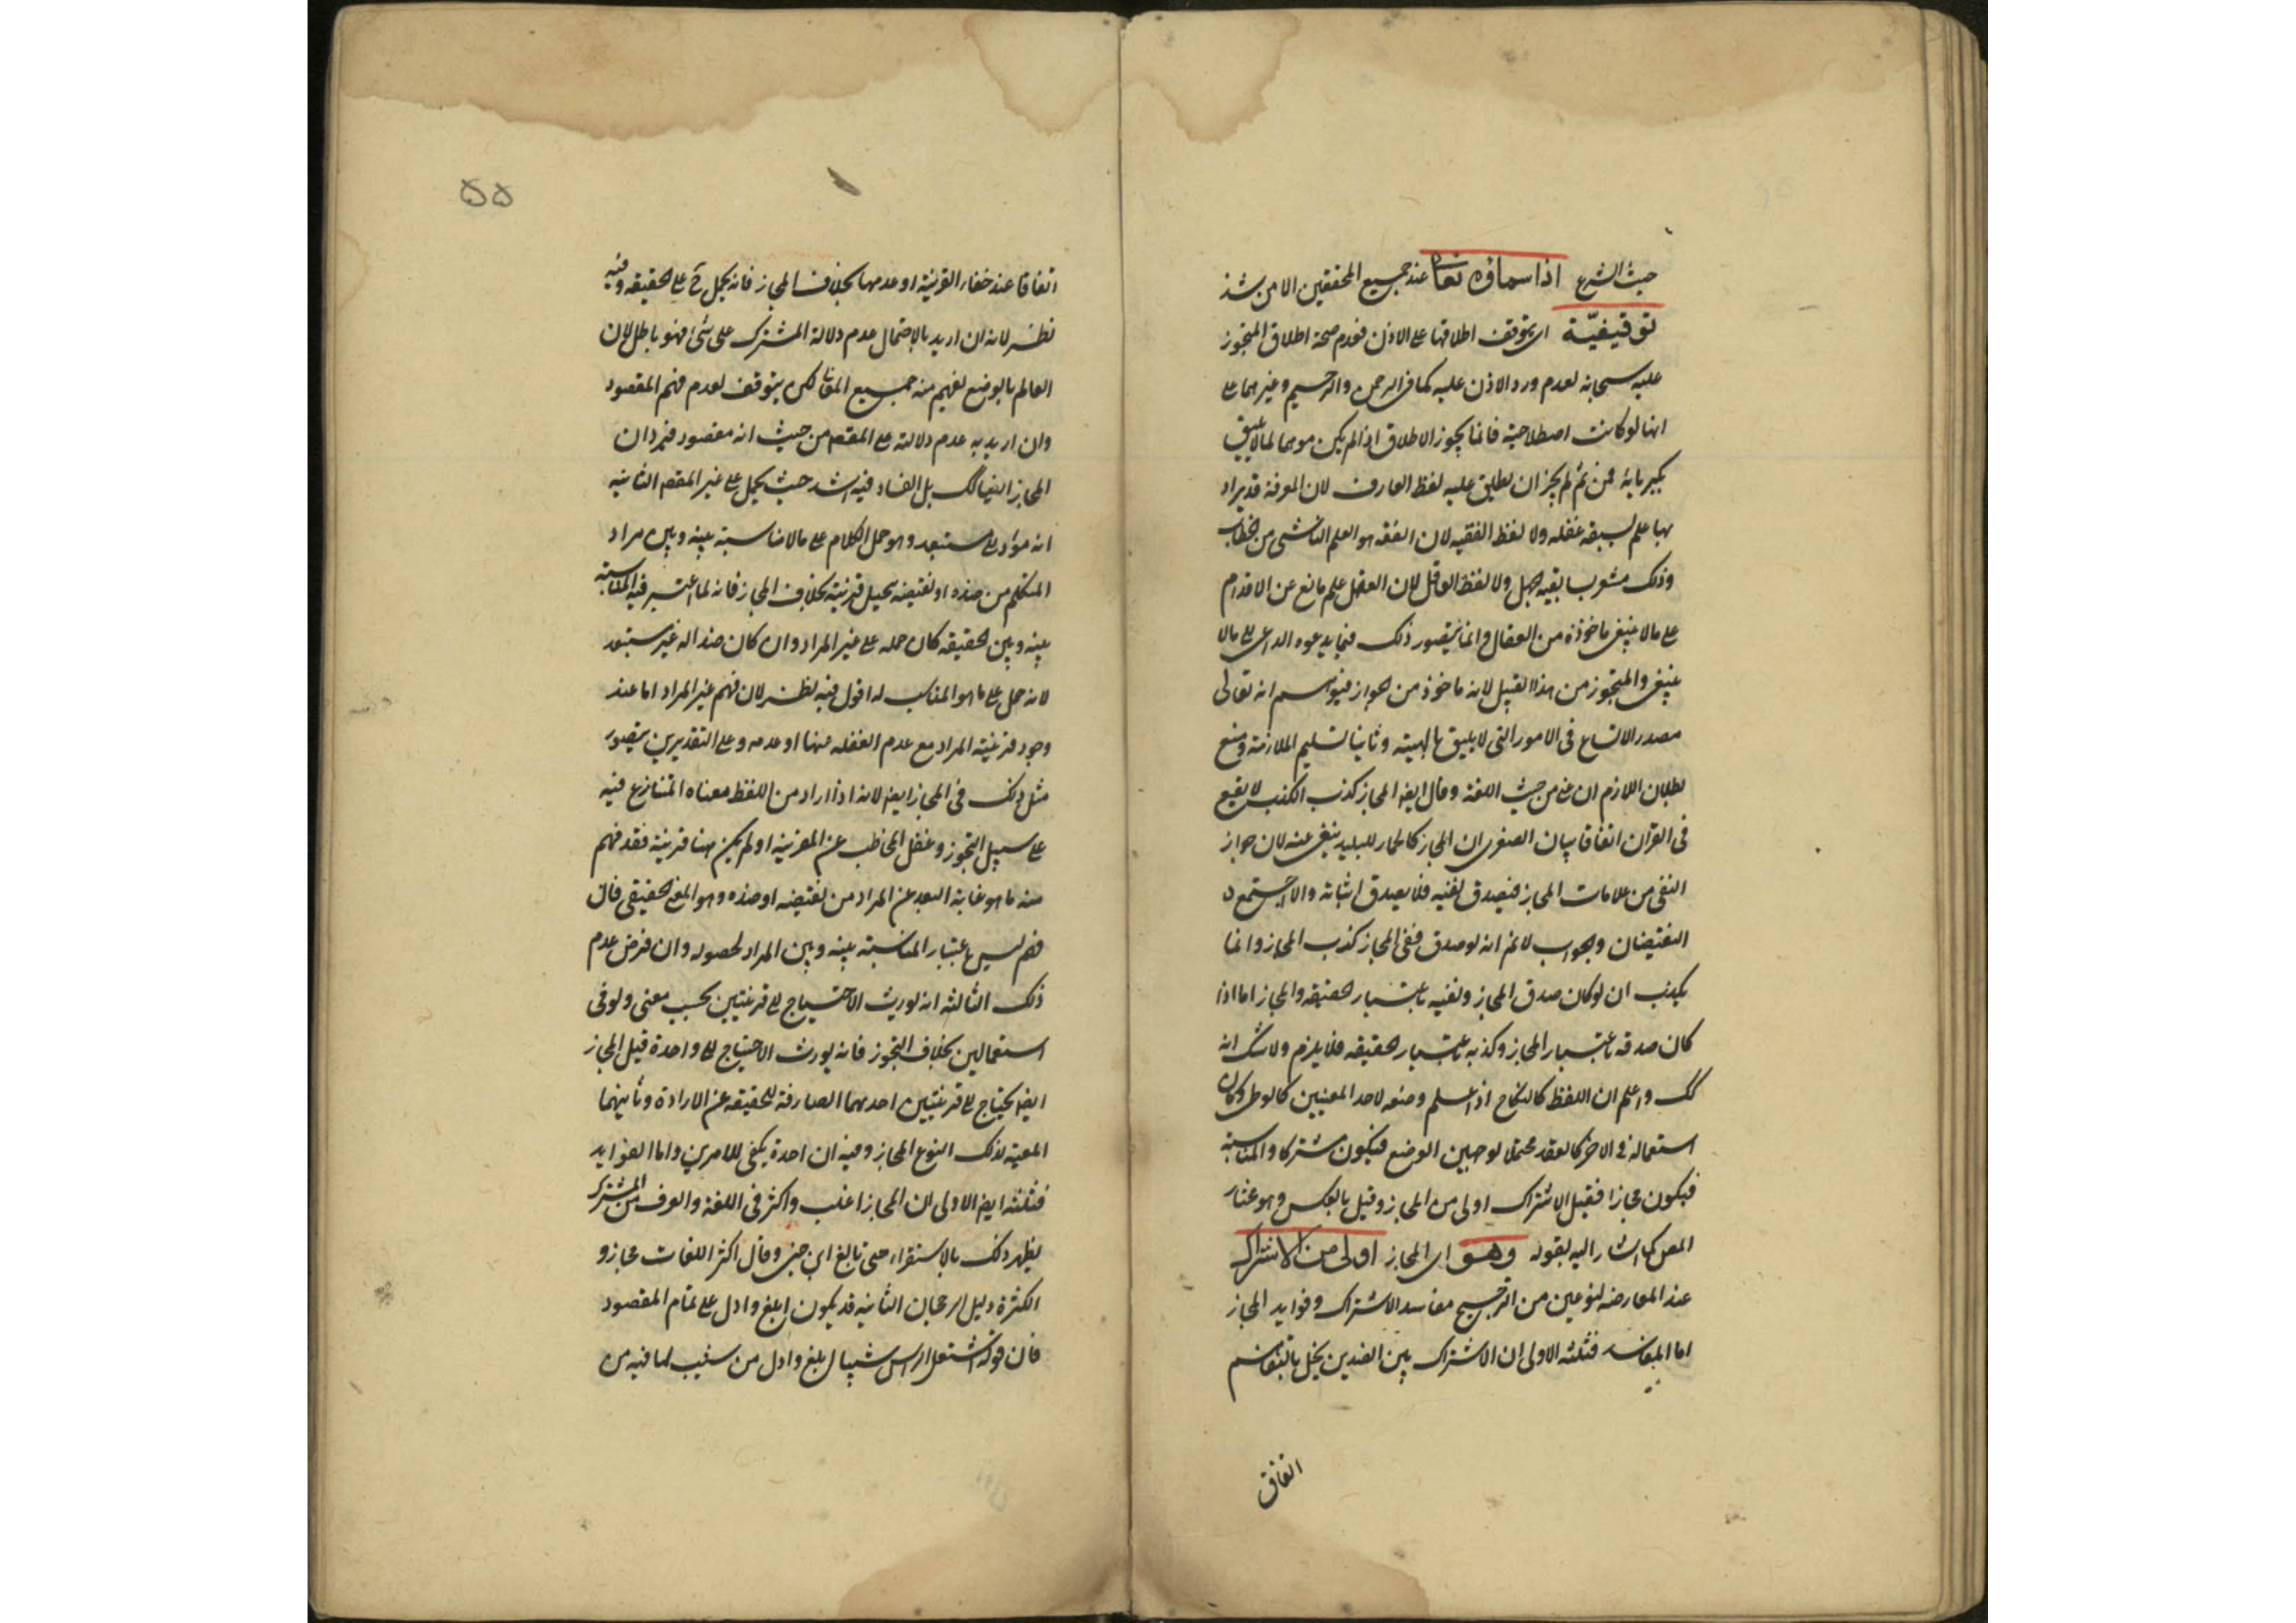 حيث الشرع اذ اسماؤه تعا عند جميع المحققين الا من شذ
توقيفيّة اى يتوقف اطلاقها على الاذن فعدم صحة اطلاق المتجوز
عليه سبحانه لعدم ورد الاذن عليه كما فى الرحمن والرحيم وغيرهما على
انها لو كانت اصطلاحية فانما يجوز الاطلاق اذا لم يكن موهما لما لا يليق
بكبريائه فمن ثم لم يجز ان يطلق عليه لفظ العارف لان المعرفة قد يراد
بها علم يسبقه غفله ولا لفظ الفقيه لان الفقه هو العلم الناشى من الخطاب
وذلك مشوب بقيه جهل ولا لفظ العاقل لان العقل علم مانع عن الاقدام
على ما لا ينبغى ماخوذة من العقال وانما يتصور ذلك فيما يدعوه الداعى الى ما لا
ينبغى والمتجوز من هذا القبيل لانه ماخوذ من الجواز فيوهم انه تعالى
مصدر الاتساع فى الامور التى لا يليق بالهيته وثانيا تسليم الملازمة ومنع
بطلان اللازم ان عنى من حيث اللغة وقال ايضا المجاز كذب الكذب لا يقع
فى القران اتفاقا بيان الصغرى ان المجاز كالحمار للبليد ينفى عنه لان جواز
النفى من علامات المجاز فيصدق نفيه فلا يصدق اثباته والا اجتمع
النقيضان والجواب لا نم انه لو صدق نفى المجاز كذب المجاز وانما
يكذب ان لو كان صدق المجاز ونفيه باعتبار الحقيقه والمجاز اما اذا
كان صدقه باعتبار المجاز وكذبه باعتبار الحقيقه فلا يلزم ولا شك انه
كك واعلم ان اللفظ كالنكاح اذا علم وضعه لاحد المعنيين كالوطى وكان
استعماله فى الاخر كالعقد محتملا لوجهين الوضع فيكون مشتركا والمناسبة
فيكون مجازا فقيل الاشتراك اولى من المجاز وقيل بالعكس وهو مختار
المص كما اشار اليه بقوله وهو اى المجاز اولى من الاشتراك
عند المعارضه لنوعين من الترجيح مفاسد الاشتراك وفوايد المجاز
اما المفاسد فثلثه الاولى ان الاشتراك بين الضدين يخل بالتفاهم
اتفاق
٥٥
اتفاقا عند خفاء القرينة او عدمها بخلاف المجاز فانه يحمل ح على الحقيقه وفيه
نظر لانه ان اريد بالاحتمال عدم دلالة المشترك على شئ فهو باطل لان
العالم بالوضع يفهم منه جميع المعانى لكن يتوقف لعدم فهم المقصود
وان اريد به عدم دلالته على المقصد من حيث انه مقصود فيرد ان
المجاز ايضا كك بل الفساد فيه اشد حيث يحمل على غير المقصد الثانيه
انه مؤد الى مستبعد وهو حمل الكلام على ما لا مناسبة بينه وبين مراد
المتكلم من ضده او نقيضه بخلاف المجاز فانه لما اعتبر فيه المناسبة
بينه وبين الحقيقه كان حمله على غير المراد وان كان ضدا له غير مستبعد
لانه حمل على ما هو المناسب له اقول فيه نظر لان فهم غير المراد اما عند
وجود قرينية المراد مع عدم الغفله عنها او عدمه وعلى التقديرين يتصور
مثل ذلك فى المجاز ايضا لانه اذا اراد من اللفظ معناه المتنازع فيه
على سبيل التجوز وغفل المخاطب عن القرينة او لم يكن هنا قرينية فقد فهم
منه ما هو غاية البعد عن المراد من نقيضه او ضده وهو المعنى الحقيقى فان
فهم ليس باعتبار المناسبة بينه وبين المراد لحصوله وان فرض عدم
ذلك الثالثه انه يورث الاحتياج الى قرينتين بحسب معنى ولو فى
استعمالين بخلاف التجوز فانه يورث الاحتياج الى واحدة قيل المجاز
ايضا يحتاج الى قرينتين احدهما الصارفة للحقيقه عن الارادة وثانيهما
المعينه لذلك النوع المجاز وفيه ان احدة يكفى للامرين واما الفوايد
فثلثه ايضا الاولى ان المجاز اغلب واكثر فى اللغة والعرف من المشترك
يظهر ذلك بالاستقراء حتى بالغ ابن جنى وقال اكثر اللغات مجاز و
الكثرة دليل الرجحان الثانيه قد يكون ابلغ وادل على تمام المقصود
فان قوله اشتعل الراس شيبا ابلغ وادل من شيب لما فيه من